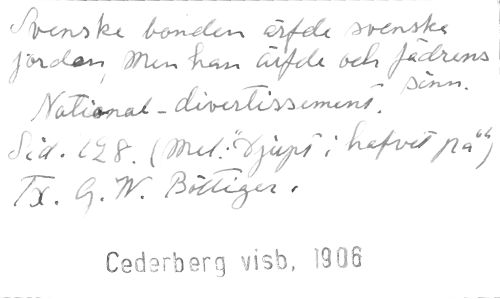 Svenske bonden ärfde svenska
jorden, Men han ärfde och fädrens
sinn.
National-divertissement.
Sid. 128. (Mel: "Djupt i hafvet på")
Tx. G. W. Böttiger.
Cederberg visb, 1906